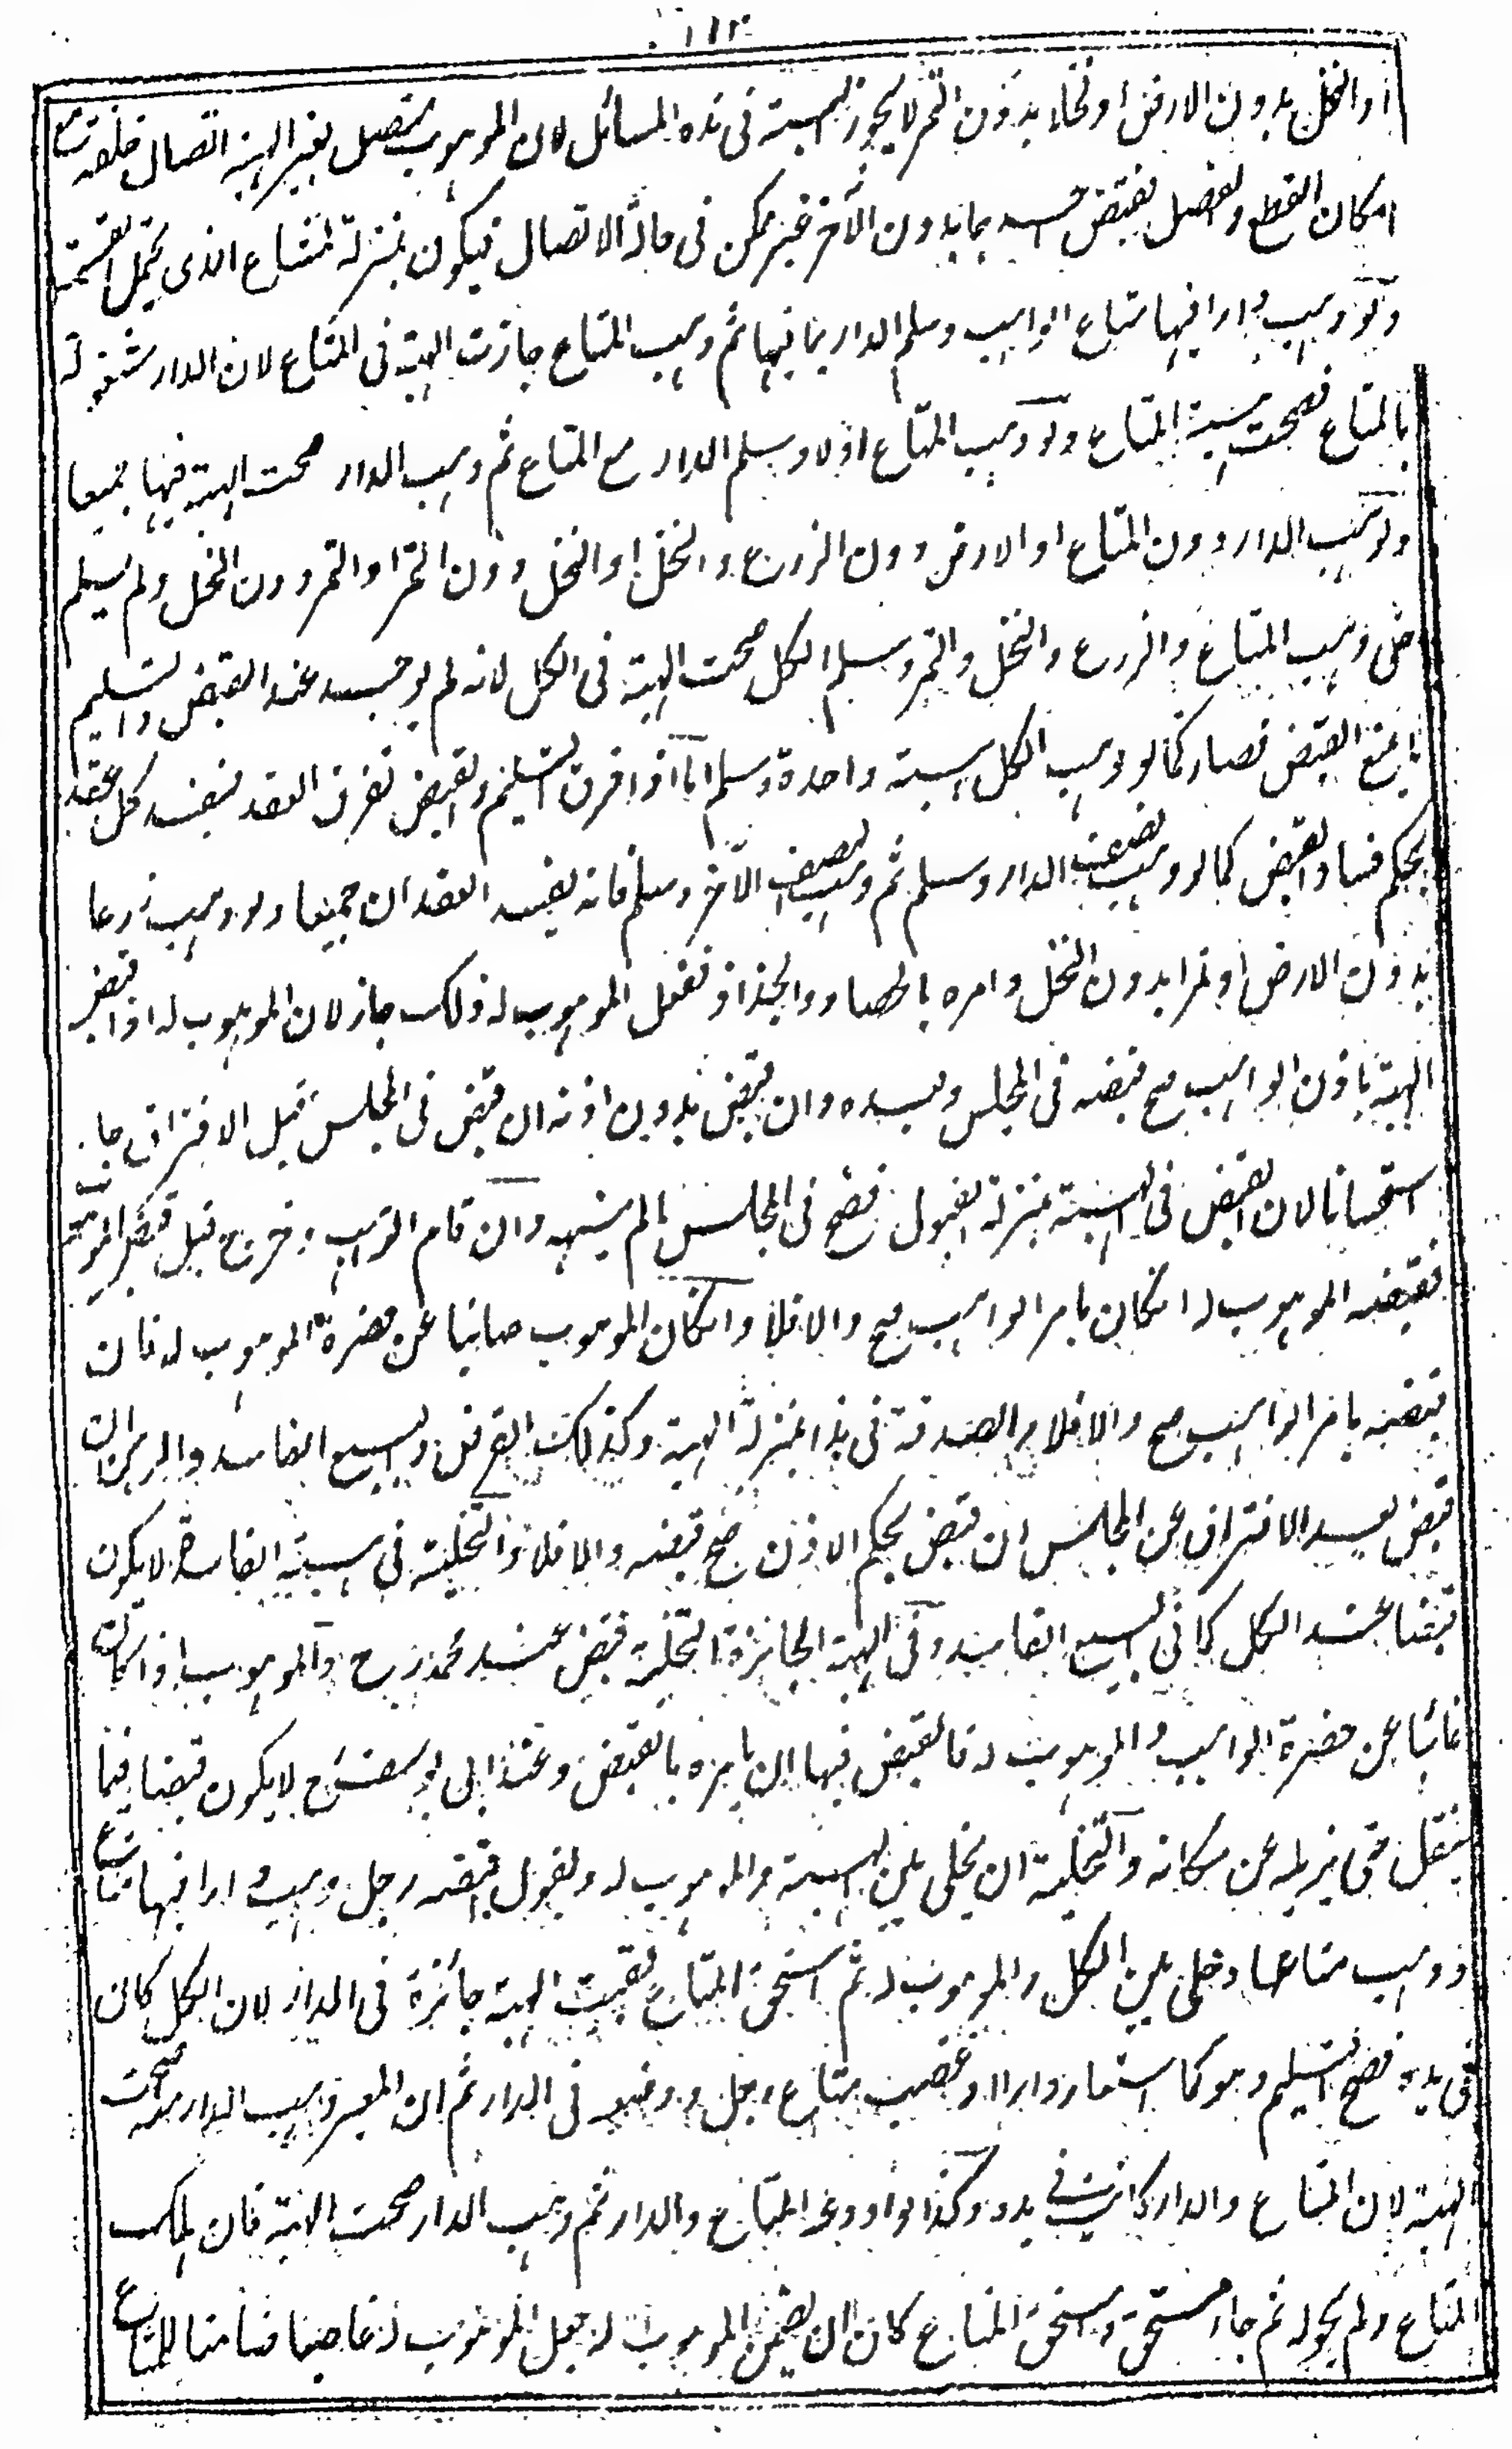 ١١٣
او النخل بدون الارض او نخلا بدون التمر لا يجوز الهبة فى هذه المسائل لان الموهوب متصل بغير الهبة اتصال خلقة مع
امكان القطع والفصل فقبض احدهما بدون الآخر غير ممكن فى حالة الاتصال فيكون بمنزلة المشاع الذى يحتمل القسمة
ولو وهب دارا فيها متاع الواهب وسلم الدار بما فيها ثم وهب المتاع جازت الهبة فى المتاع لان الدار مشغولة
بالمتاع فصحت هبة المتاع ولو وهب المتاع اولا وسلم الدار مع المتاع ثم وهب الدار صحت الهبة فيها جميعا
ولو وهب الدار دون المتاع او الارض دون الزرع والنخل او النخل دون التمر او التمر دون النخل ولم يسلم
حتى وهب المتاع والزرع والنخل والتمر وسلم الكل صحت الهبة فى الكل لانه لم يوجد عند القبض والتسليم
ما يمنع القبض فصار كما لو وهب الكل هبة واحدة وسلم اما اذا فرق التسليم والقبض تفرق العقد فيفسد كل عقد
بحكم فساد القبض كما لو وهب نصف الدار وسلم ثم وهب النصف الآخر وسلم فانه يفسد العقدان جميعا ولو وهب زرعا
بدون الارض او تمرا بدون النخل وامره بالحصاد والجذاذ ففعل الموهوب له ذلك جاز لان الموهوب له اذا قبض
الهبة باذن الواهب صح قبضه فى المجلس وبعده وان قبض بدون اذنه ان قبض فى المجلس قبل الافتراق جاز
استحسانا لان القبض فى الهبة بمنزلة القبول فصح فى المجلس ما لم ينهه وان قام الواهب وخرج قبل قبض الموهوب
فقبضه الموهوب له ان كان بامر الواهب صح والا فلا وان كان الموهوب غائبا عن حضرة الموهوب له فان
قبضه بامر الواهب صح والا فلا والصدقة فى هذا بمنزلة الهبة وكذلك القرض والبيع الفاسد والرهن ان
قبض بعد الافتراق عن المجلس ان قبض بحكم الاذن صح قبضه والا فلا والتخلية فى هبة الفاسدة لا يكون
قبضا عند الكل كما فى البيع الفاسد وفى الهبة الجائزة التخلية قبض عند محمد رح والموهوب اذا كان
غائبا عن حضرة الواهب والموهوب له فالقبض فيها ان يامره بالقبض وعند ابى يوسف رح لا يكون قبضا فيما
ينقل حتى يزيله عن مكانه والتخلية ان يخلى بين الهبة والموهوب له ويقول اقبضه رجل وهب دارا فيها متاع
ووهب متاعها وخلى بين الكل والموهوب له ثم استحق المتاع بقيت الهبة جائزة فى الدار لان الكل كان
فى يده فصح التسليم وهو كما استعار دارا او غصب متاع رجل ووضعه فى الدار ثم ان المعير وهب الدار منه صحت
الهبة لان المتاع والدار كانت فى يده وكذا لو اودعه المتاع والدار ثم وهب الدار صحت الهبة فان هلك
المتاع ولم يحوله ثم جاء مستحق واستحق المتاع كان له ان يضمن الموهوب له جعل الموهوب له غاصبا ضامنا للمتاع